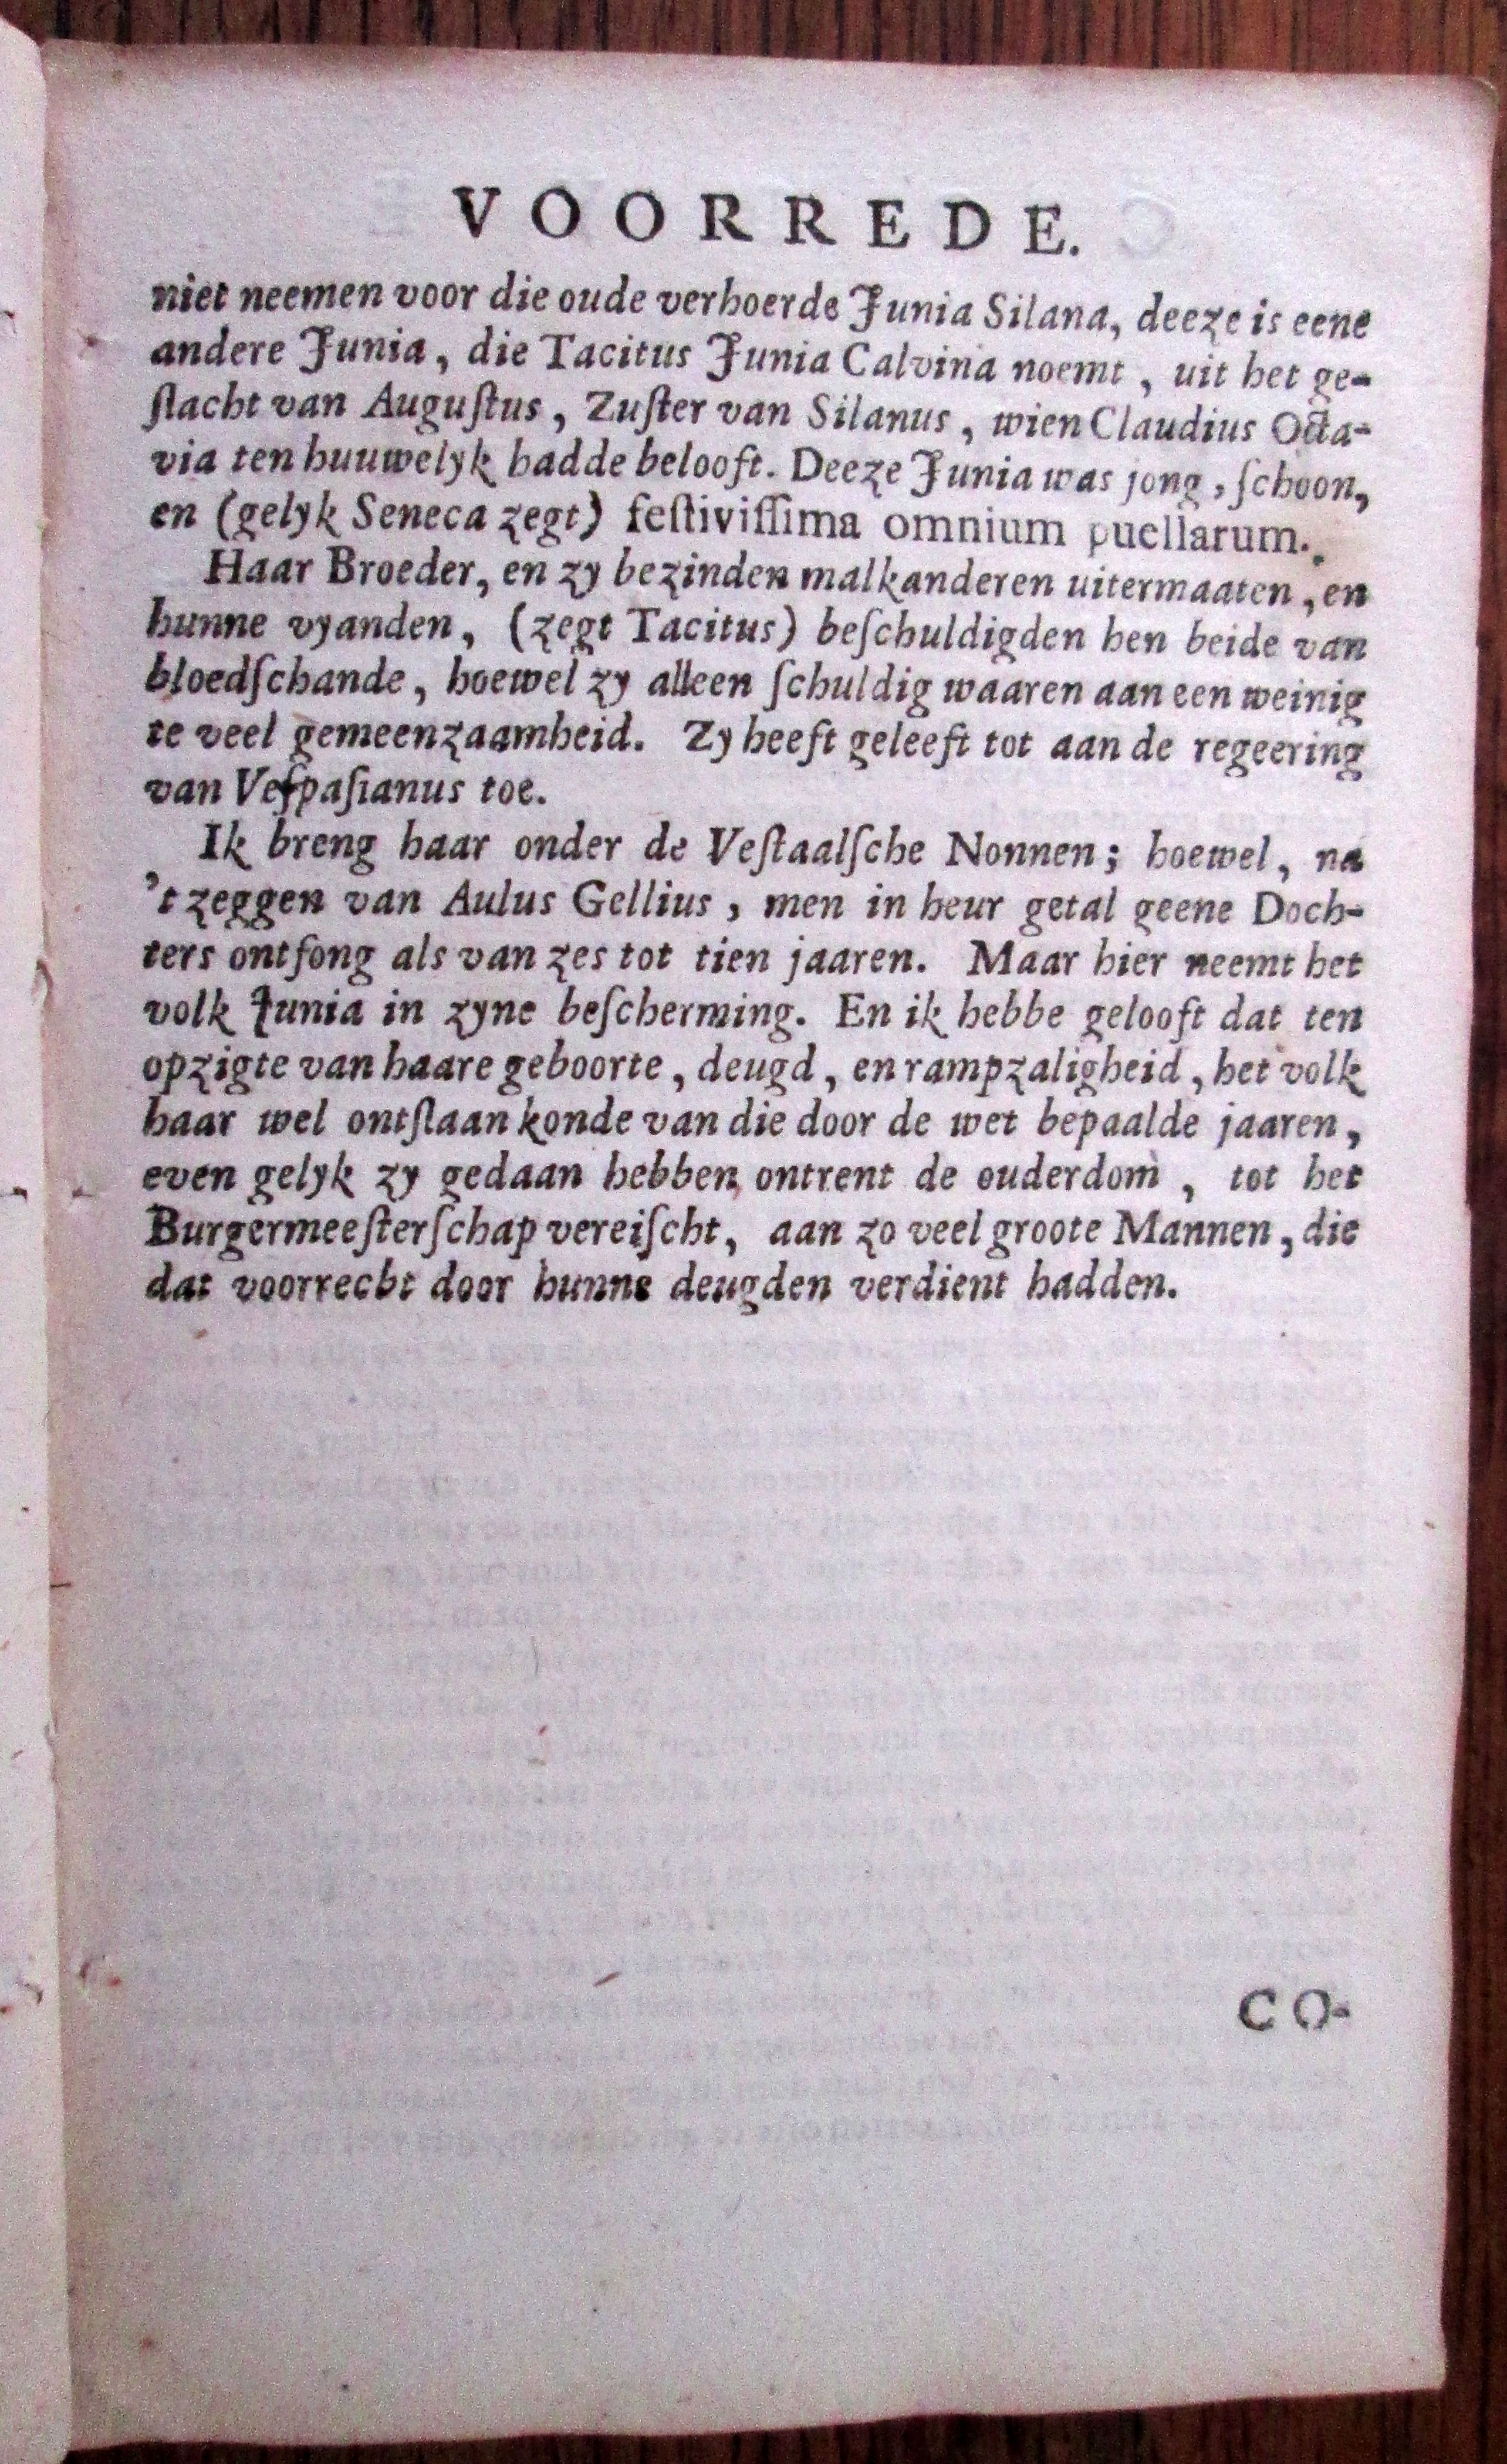 VOORREDE.
niet neemen voor die oude verhoerde Junia Silana, deeze is eene
andere Junia, die Tacitus Junia Calvina noemt, uit het ge-
ſlacht van Auguſtus, Zuſter van Silanus, wien Claudius Octa-
via ten huuwelyk hadde belooft. Deeze Junia was jong, ſchoon,
en (gelyk Seneca zegt) feſtiviſſima omnium puellarum.
Haar Broeder, en zy bezinden malkanderen uitermaaten, en
hunne vyanden, (zegt Tacitus) beſchuldigden hen beide van
bloedſchande, hoewel zy alleen ſchuldig waaren aan een weinig
te veel gemeenzaamheid. Zy heeft geleeft tot aan de regeering
van Veſpaſianus toe.
Ik breng haar onder de Veſtaalſche Nonnen; hoewel, na
't zeggen van Aulus Gellius, men in heur getal geene Doch-
ters ontfong als van zes tot tien jaaren. Maar hier neemt het
volk Junia in zyne beſcherming. En ik hebbe gelooft dat ten
opzigte van haare geboorte, deugd, en rampzaligheid, het volk
haar wel ontſlaan konde van die door de wet bepaalde jaaren,
even gelyk zy gedaan hebben ontrent de ouderdom, tot het
Burgermeeſterſchap vereiſcht, aan zo veel groote Mannen, die
dat voorrecht door hunne deugden verdient hadden.
CO-